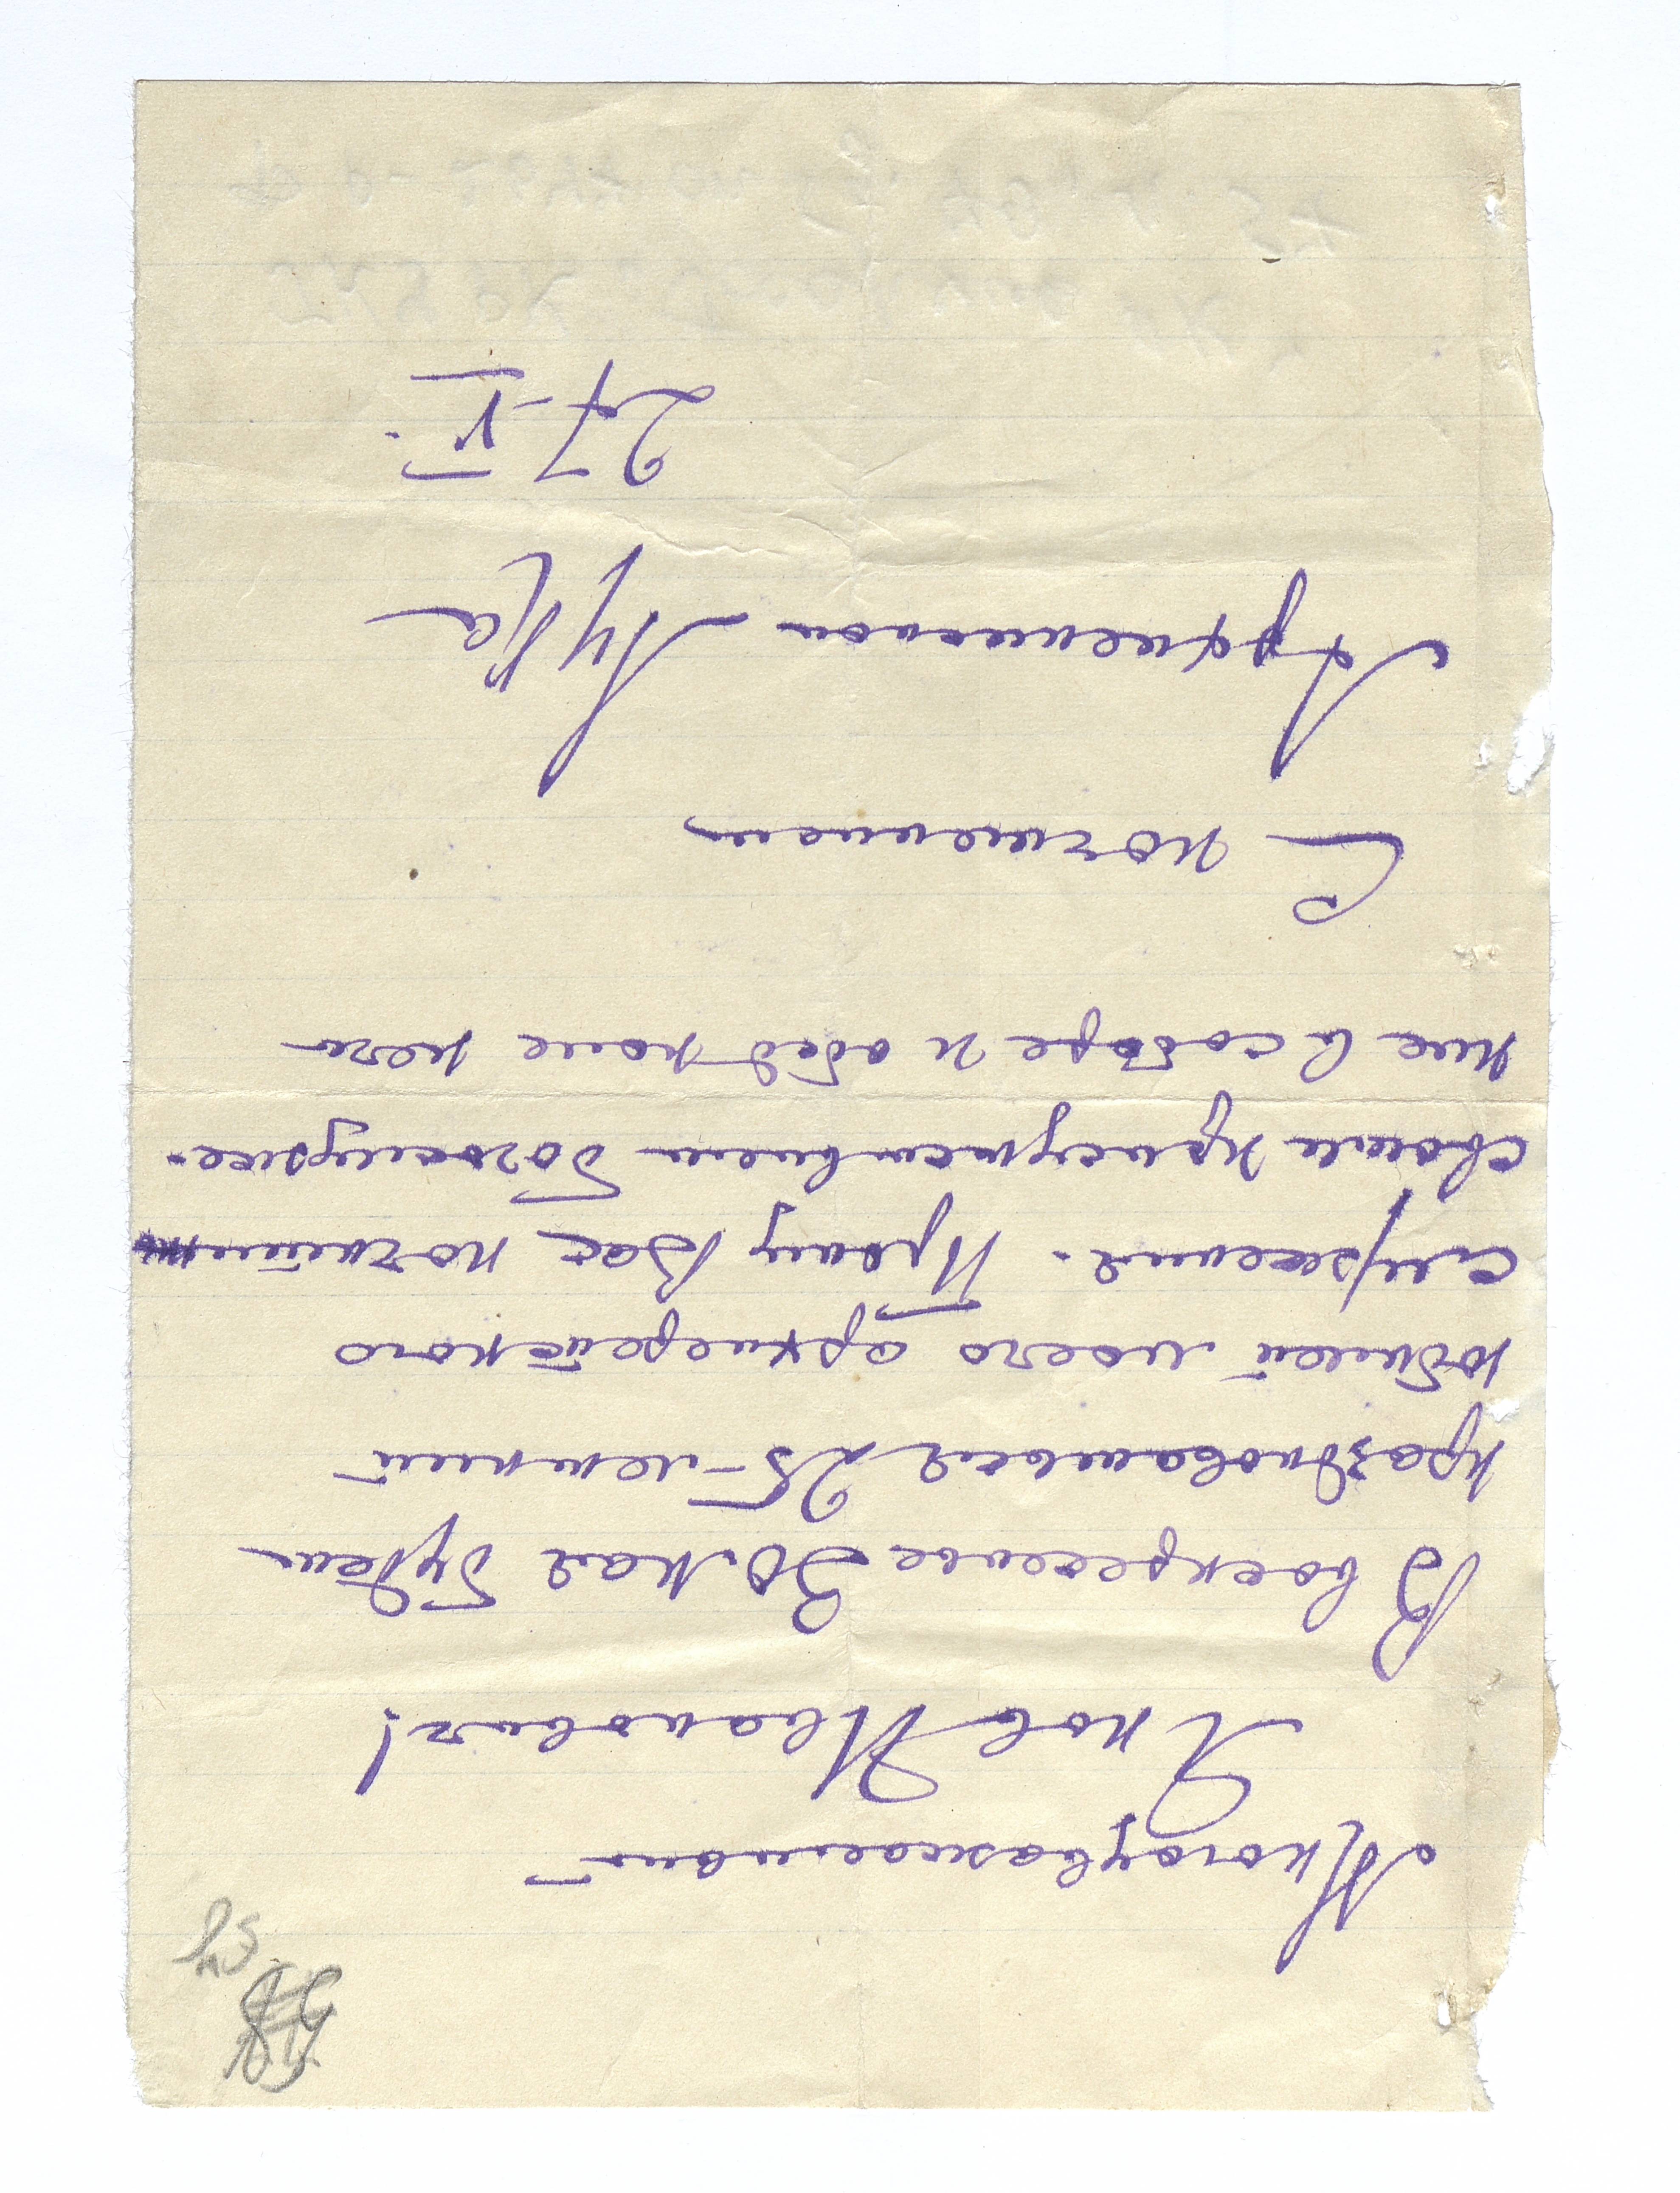 Многоуважаемый
Яков Иванович!
В воскресенье 30 мая будет
праздноваться 25-летний
юбилей моего архиерейского
служения. Прошу Вас почтить
своим присутствием богослуже-
ние в соборе и обед поле него
С почтением
Архиепископ Лука
27-V.